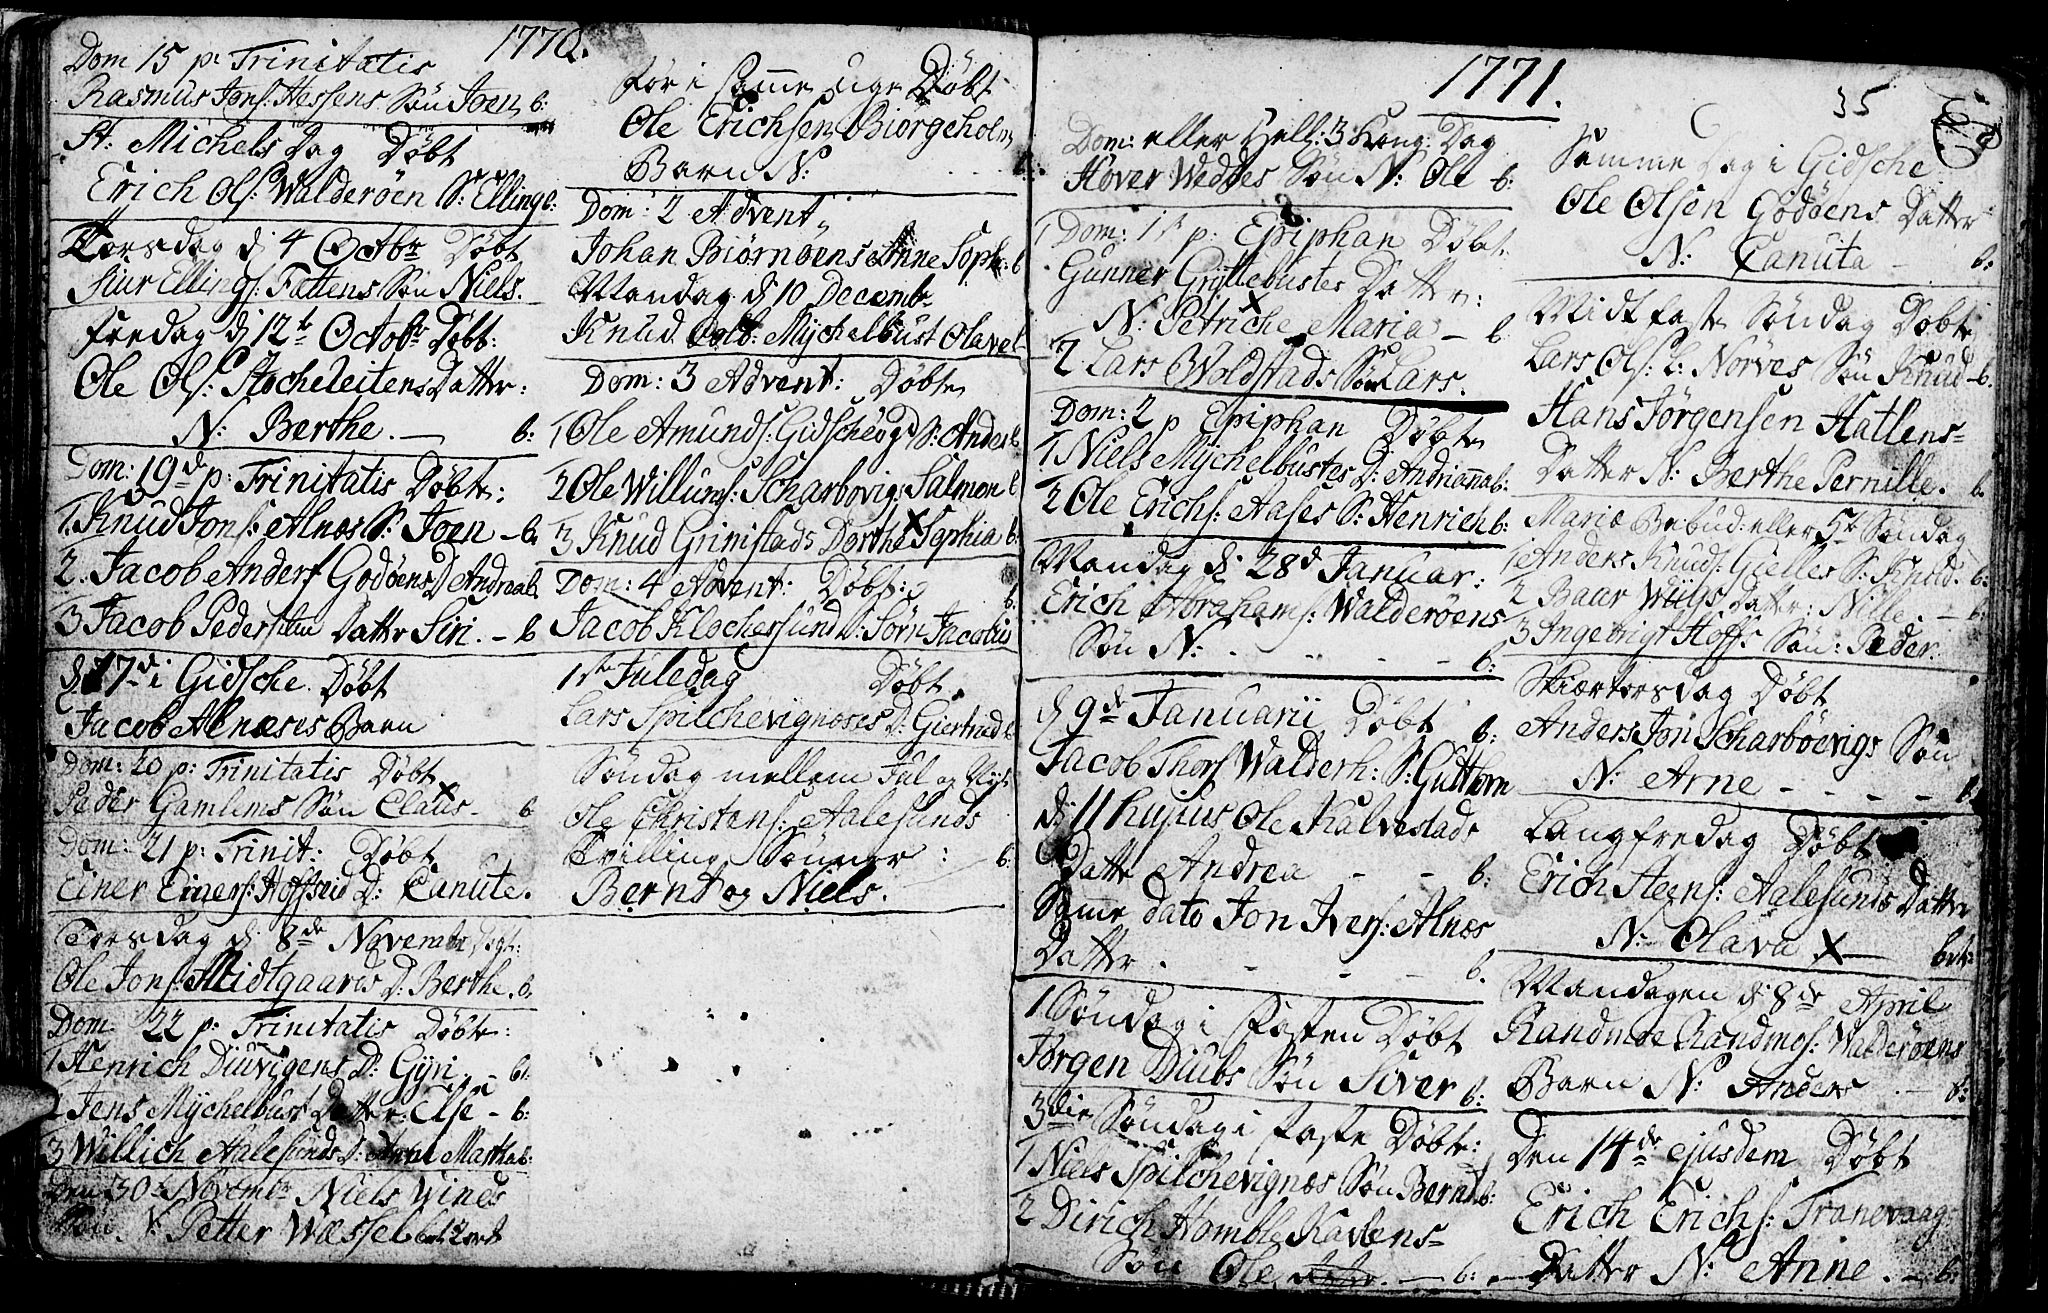 1770.
Dom 15 p: Trinitatis
Rasmus Jons: Hessens Søn Joen b:
St. Michels Dag Døbt
Erich Ols: Walderöen S: Elling b:
Torsdag d 4 Octobr Døbt
Siur Ellings: Tattens Søn Niels.
Fredag d 12te Octobr Døbt:
Ole Ols: Stocheleitens Datter:
N: Berthe. — b:
Dom: 19de p: Trinitatis Døbte:
1. Knud Jons: Alnæs S: Joen - b.
2. Jacob Anders Godöens D Andrea b.
3 Jacob Peders Datter Siri. - b
d 17de i Gidsche Døbt
Jacob Alnæses Barn
Dom: 20 p: Trinitatis Døbt
Peder Gamlems Søn Claus - b
Dom: 21 p: Trinit: Døbt
Einer Einers: Hoffseid D: Canute.
Torsdag d 8de Novembr Døbt:
Ole Jons: Midtgaards D: Berthe. b.
Dom. 22 p: Trinitatis Døbte:
1 Henrich Diuvigens D: Gÿri. - b:
2 Jens Mÿchelbust Datter Else - b:
3 Willich Aalesunds D: Martha b:
Den 30te Novembr Niels Winds
Søn N: Petter Wæssel
før i samme uge Døbt
Ole Erichsen Biorgeholm
Barn N:
Dom: 2 Advent:
Johan Biörnöens Anne Soph: b
Mandag d 10 Decembr
Knud Mÿchelbust Olave b
Dom: 3 Advent: Døbte
1 Ole Amunds: Gidscheög S: Ander b.
2 Ole Willums: Scharbövig: Salmon b
3 Knud Grimstads Dorthe Sophia b:
Dom: 4 Advent: Døbt:
b.
Jacob Klochersund D: Sörn Jacobi
1ste Juledag Døbt.
Lars Spilchevignæses D: Giertrud b.
Søndag mellem Jul og Nÿt
Ole Christens: Aalesunds
Tvilling Sønner: - b:
Bernt og Niels.
1771.
35
Dom: eller Hell: 3 Kong: Dag
Hover Weddes Søn N: Ole b:
1 Dom: 1ste p: Epiphan Døbt
Gunner Grÿttebustes Datter:
N: Petriche Maria — b
2 Lars Woldstads Søn Lars.
Dom: 2 p Epiphan Døbte
1 Niels Mÿchelbustes D: Andrianna b:
2 Ole Erichs: Aases S: Henrich b:
Mandag d 28de Januar:
Erich Abrahams: Walderöens
Søn N: - - - - b:
d 9de Januarii Døbt b:
Jacob Thors Walderh: S: Guttorm
d 11 hujus Ole Kalvestads
Datter Andrea - - b:
Samme dato Jon Ivers: Alnæs
Datter. - - - - b.
1 Søndag i Fasten Døbt
Jörgen Diubs Søn Siver b:
3die Søndag i Faste Døbte:
1 Niels Spilchevignæs Søn Bernt b:
2 Dirich Homble Havlens=
Søn Ole - b:
Samme Dag i Gidsche
Ole Olsen Godöens Datter
N: Canuta - b:
Midtfaste Søndag Døbte
Lars Ols: l: Nörves Søn Knud - b.
Hans Jörgensen Hatlens=
Datter N: Berthe Pernille. b.
Mariæ Bebud: eller 5te Søndag
1 Anders Knuds: Gielles S: Knud. b:
2 Baar Wiigs Datter: Nille - b:
3 Ingebrigt Hoffs Søn: Peder.
Skiærtorsdag Døbt
Anders Jon Scharböevigs Søn
N: Arne - - - - b:
Langfredag Døbt
Erich Steens: Aalesunds Datter
N: Olava
Mandagen d 8de April
Randmoe Randmos: Walderöens
Barn N: Anders - b:
Den 14de ejusdem Døbt
Erich Erichs: Tranevaag:
Datter N: Anne. - b: